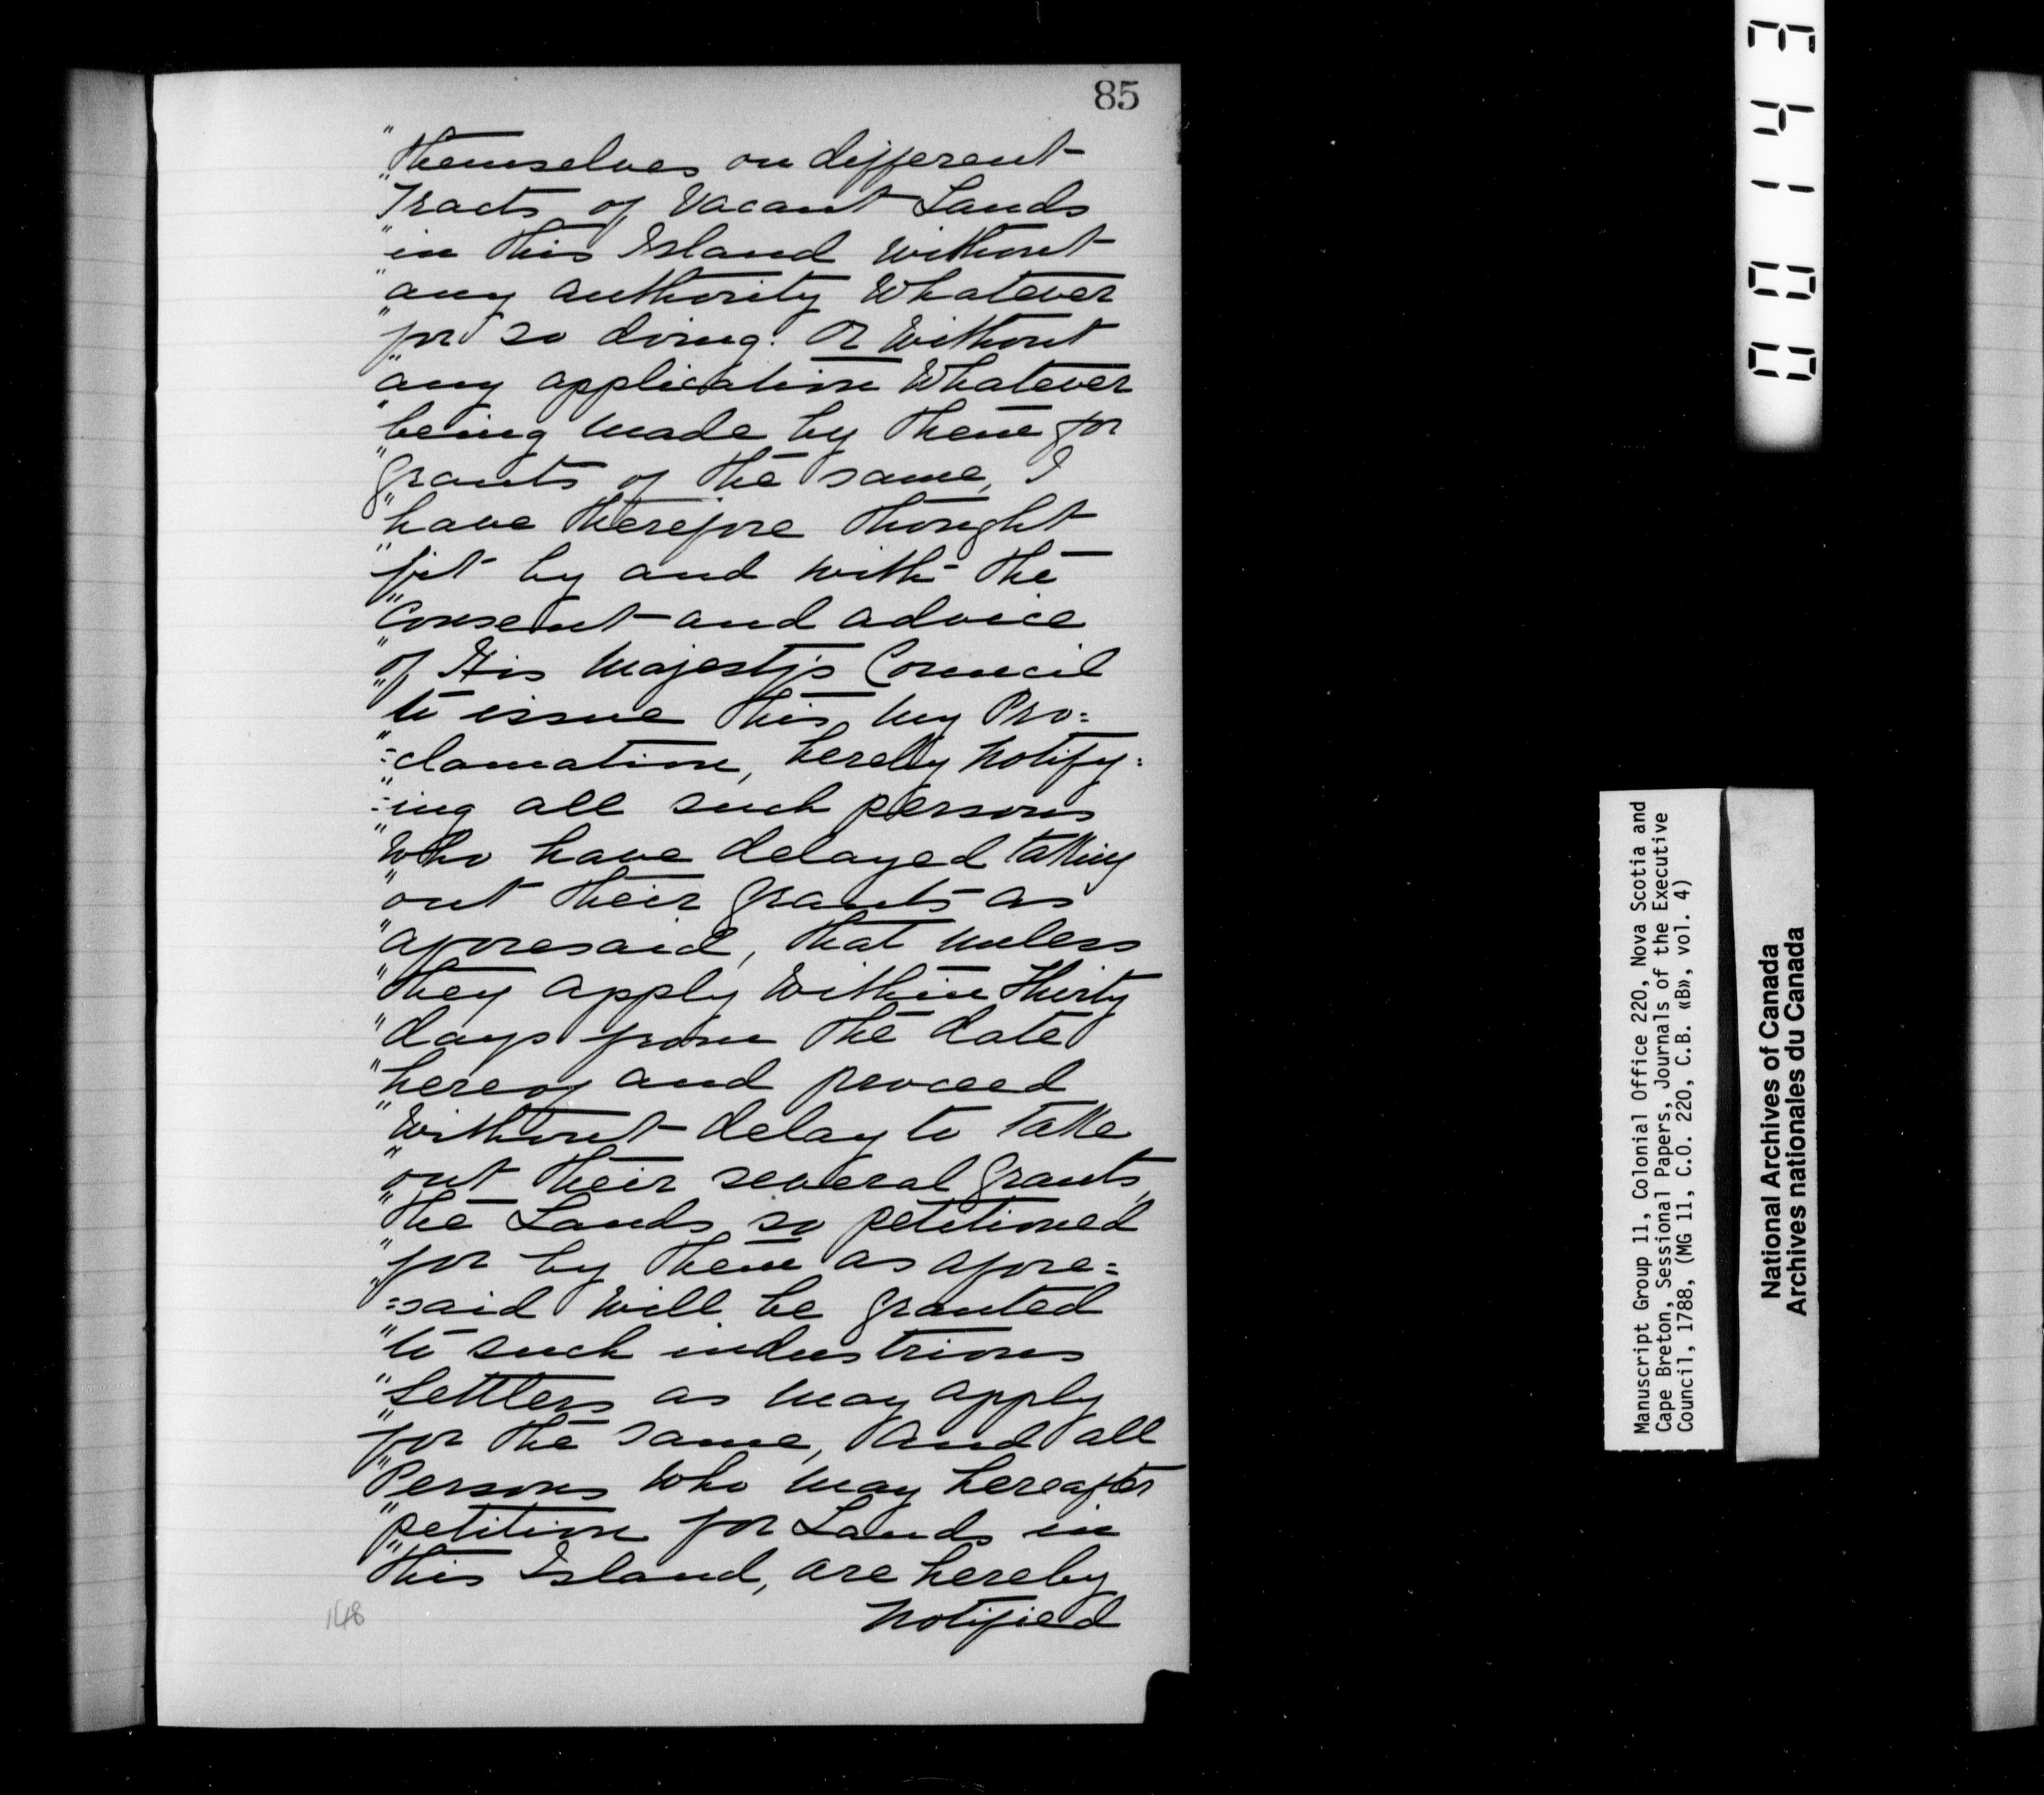 85
"themselves on different
"Tracts of Vacant Lands
"in this Island without
"any authority Whatever
"for so doing. Or Without
"any application Whatever
"being made by them for
"grants of the same, I
"have therefore thought
"fit by and with the
"Consent and advice
"of His Majesty's Council
"to issue this my Pro=
"=clamation, hereby notify=
"=ing all such persons
"Who have delayed taking
"out their grants as
"aforesaid, that unless
"they apply Within Thirty
"days from the date
"hereof and proceed
"Without delay to take
"out their several grants,
"the Lands so petitioned
"for by them as afore=
"=said Will be granted
"to such industrious
"Settlers as may apply
"for the same, And all
"Persons Who may hereafter
"petition for Lands in
"this Island, are hereby
notified
148
00143
Manuscript Group 11, Colonial Office 220, Nova Scotia and
Cape Breton, Sessional Papers, Journals of the Executive
Council, 1788, (MG 11, C.O. 220, C.B. «B», vol. 4)
National Archives of Canada
Archives nationales du Canada